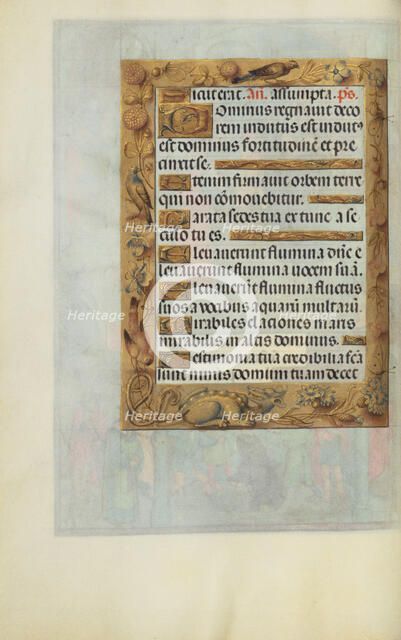 Sicut erat. An̄. assumpta. ps.
Dominus regnauit deco
rem indutus est indutꝰ
est dominus fortitudinē et pre
cinxit se.
Etenim firmauit orbem terre
qui non cōmouebitur.
Parata sedes tua ex tunc a se
culo tu es.
Eleuauerunt flumina dn̄e e
leuauerunt flumina uocem suā.
Eleuauerunt flumina fluctus
suos a uocibus aquarū multarū.
Mirabiles elaciones maris
mirabilis in altis dominus.
Testimonia tua credibilia fc̄a
sunt nimis domum tuam decet
Heritage
Heritage
Heritage
Heritage
Heritage
Heritage
Heritage
Heritage